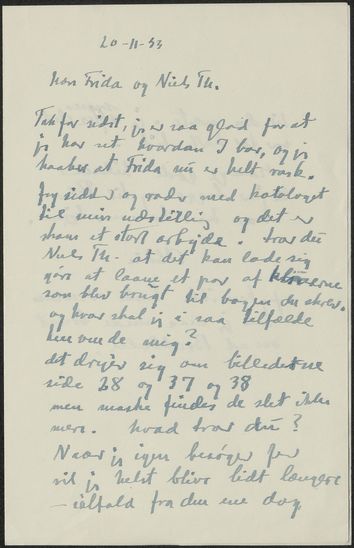 20-11-53
Kære Frida og Niels Th.
Tak for sidst, jeg er saa glad for at
jeg har set hvordan I bor, og jeg
haaber at Frida nu er helt rask.
Jeg sidder og roder med kataloget
til min udstilling og det er
skam et stort arbejde. tror du
Niels Th. at det kan lade sig
gøre at laane et par af klicheerne
som blev brugt til bogen du skrev.
og hvor skal jeg i saa tilfælde
henvende mig?
det drejer sig om billederne
side 28 og 37 og 38
men maaske findes de slet ikke
mere. hvad tror du?
Naar jeg igen besøger jer
vil jeg helst blive lidt længere
— ialfald fra den ene dag